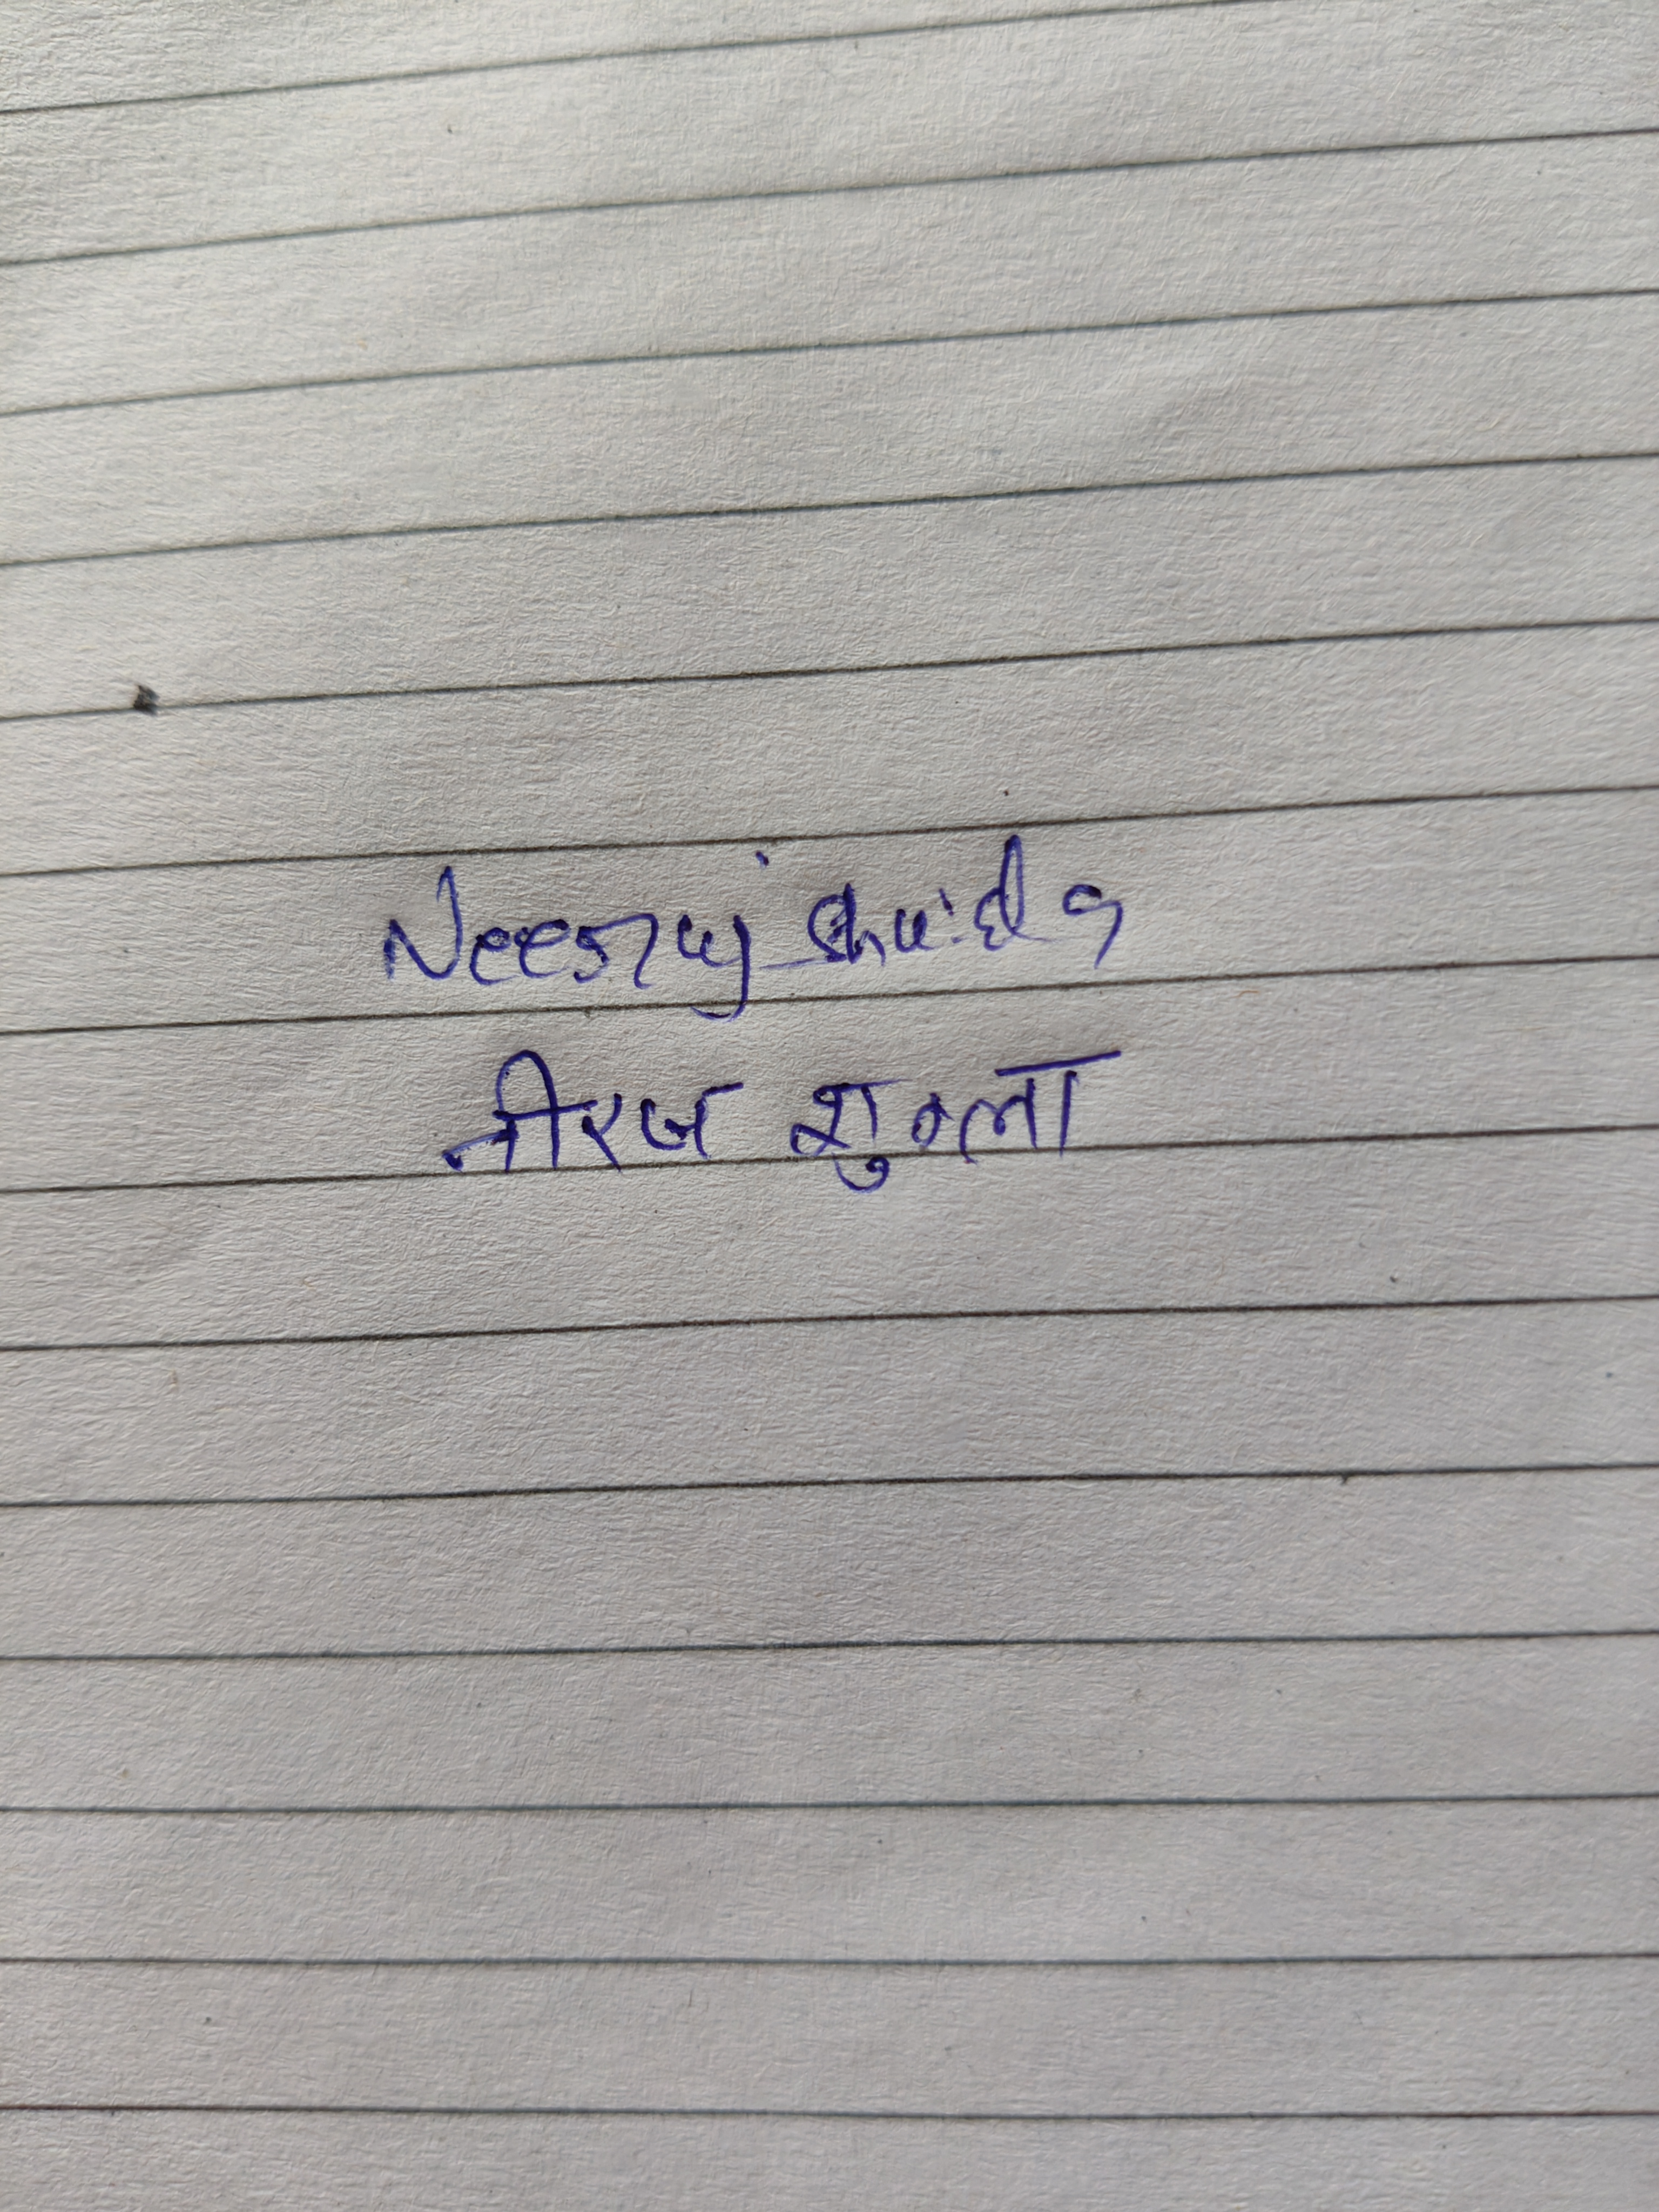 Neeraj Shukla
नीरज शुक्ला